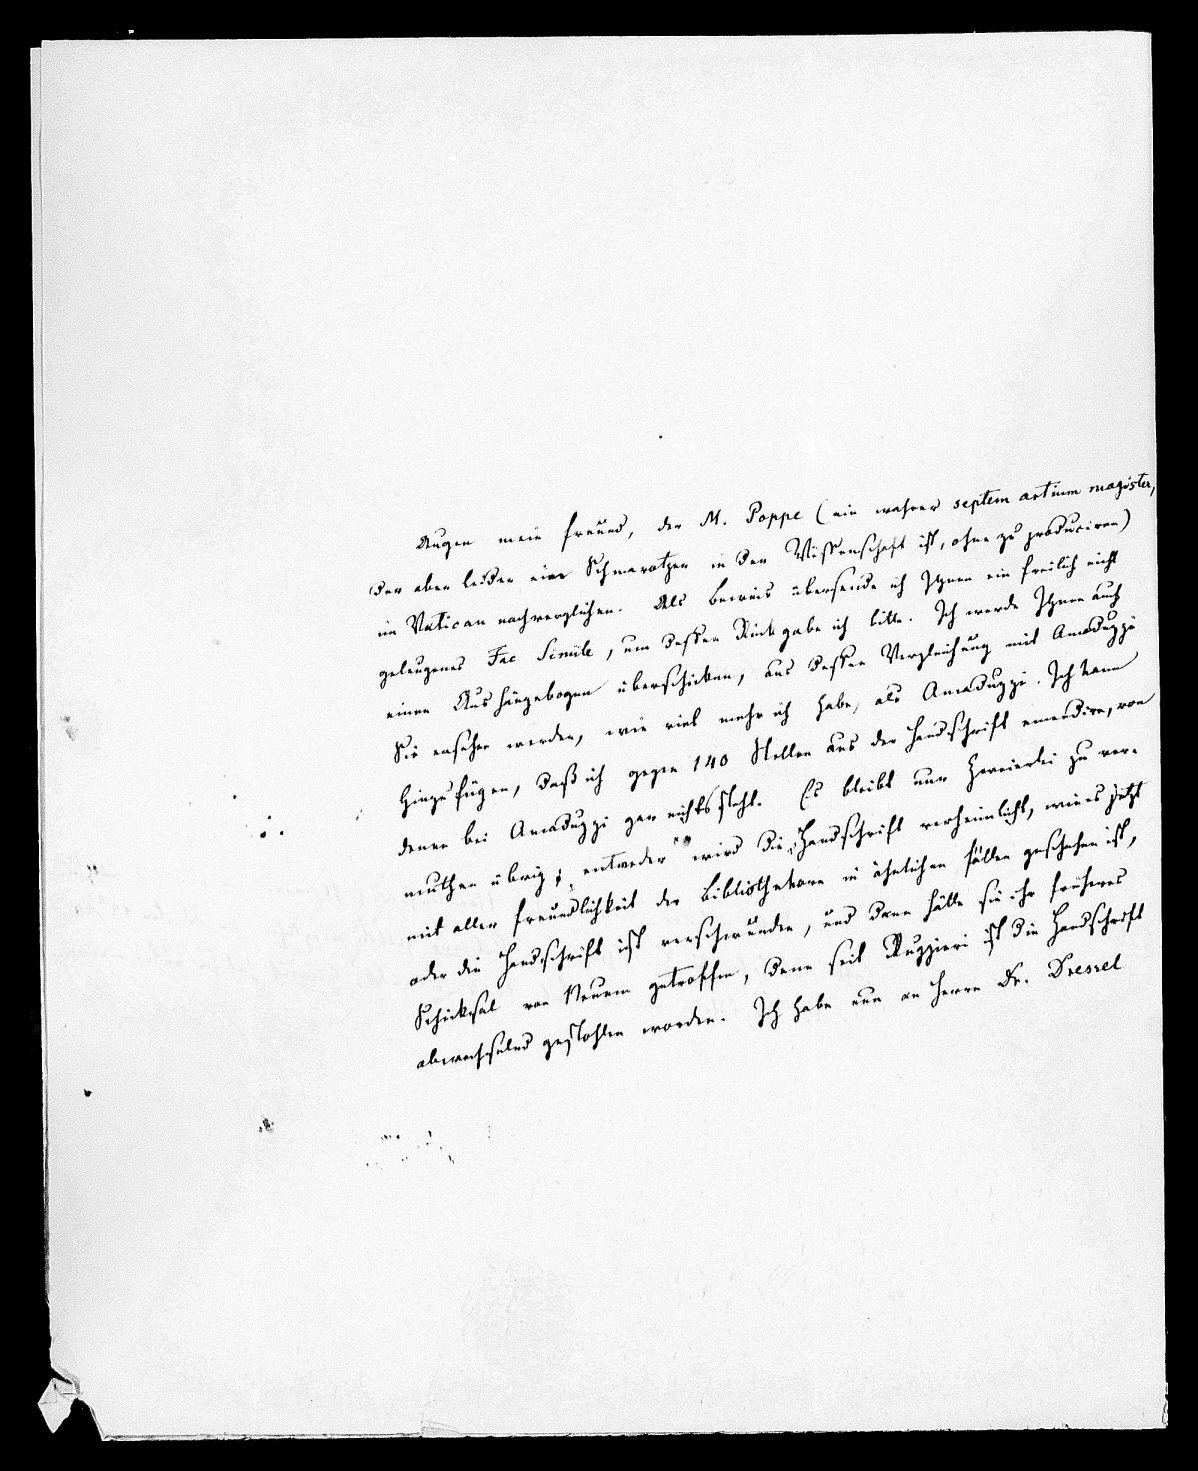 Augen mein Freund, der M. Poppe (ein wahrer septem artium magister,
der aber leider eine Schmarotzer in der Wissenschaft ist, ohne zu produciren)
im Vatican nachverglichen. Als Beweis übersende ich Ihnen ein freilich nicht
gelungenes Fac Simile, um dessen Rückgabe ich bitte. Ich werde Ihnen auch
einen Aushängebogen überschicken, aus dessen Vergleichung mit Amaduzzi
Sie ersehen werden, wie viel mehr ich habe, als Amaduzzi. Ich kann
hinzufügen, daß ich gegen 140 Stellen aus der Handschrift emendire, von
denen bei Amaduzzi gar nichts steht. Es bleibt nun zweierlei zu ver-
muthen übrig; entweder wird die Handschrift verheimlicht, wie es jetzt
mit aller Freundlichkeit der Bibliothekare in ähnlichen Fällen geschehen ist,
oder die Handschrift ist verschwunden, und dann hätte sie ihr früheres
Schicksal von Neuem getroffen, denn seit Ruggieri ist die Handschrift
abwechselnd gestohlen worden. Ich habe nun an Herrn Dr. Dressel